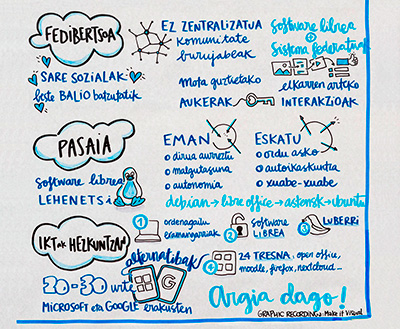 FEDIBERTSOA
EZ ZENTRALIZATUA
komunitate
burujabeak
Software librea
+
Sistema federatuak
SARE SOZIALAK
beste BALIO batzutatik
mota guztietako
AUKERAK
elkarren arteko
INTERAKZIOAK
PASAIA
software librea
LEHENETSi
EMAN
o dirua aurreztu
o malgutasuna
o autonomia
ESKATU
o ordu asko
o autoikaskuntza
o xuabe-xuabe
debian → libre office → asterisk → ubuntu
1 ordenagailu
eramangarriak
2 software
LIBREA
3 LUBERRI
IKTak HEZKUNTZAN
alternatibak!
4 24 TRESNA, open office,
moodle, firefox, nextcloud...
20-30 urte
MICROSOFT eta GOOGLE erakusten
G
Argia dago!
GRAPHIC RECORDING: Make it Visual